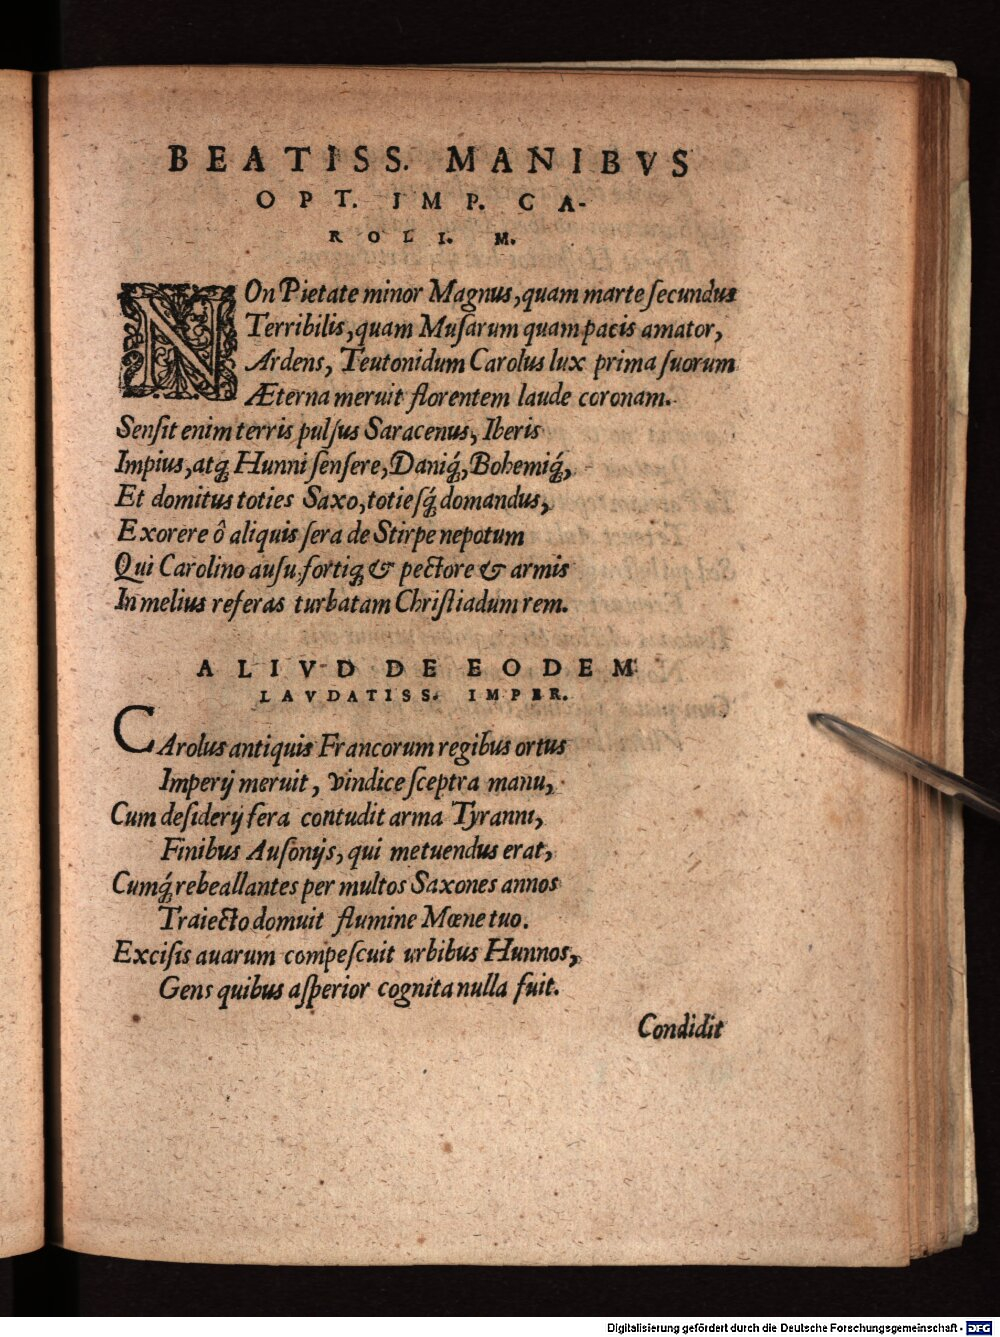 BEATISS. MANIBVS
OPT. IMP. CA-
ROLI. M.
NOn Pietate minor Magnus, quam marte ſecundus
Terribilis, quam Muſarum quam pacis amator,
Ardens, Teutonidum Carolus lux prima ſuorum
Æterna meruit florentem laude coronam.
Senſit enim terris pulſus Saracenus, Iberis
Impius, atq́; Hunni ſenſere, Daniq́;, Bohemiq́;,
Et domitus toties Saxo, totieſq́; domandus,
Exorere ô aliquis ſera de Stirpe nepotum
Qui Carolino auſu, fortiq; & pectore & armis
In melius referas turbatam Chriſtiadum rem.
ALIVD DE EODEM
LAVDATISS. IMPER.
CArolus antiquis Francorum regibus ortus
Imperij meruit, vindice ſceptra manu,
Cum deſiderij fera contudit arma Tyranni,
Finibus Auſonijs, qui metuendus erat,
Cumq́; rebeallantes per multos Saxones annos
Traiecto domuit flumine Mœne tuo.
Exciſis auarum compeſcuit urbibus Hunnos,
Gens quibus aſperior cognita nulla fuit.
Condidit
Digitalisierung gefördert durch die Deutsche Forschungsgemeinschaft - DFG